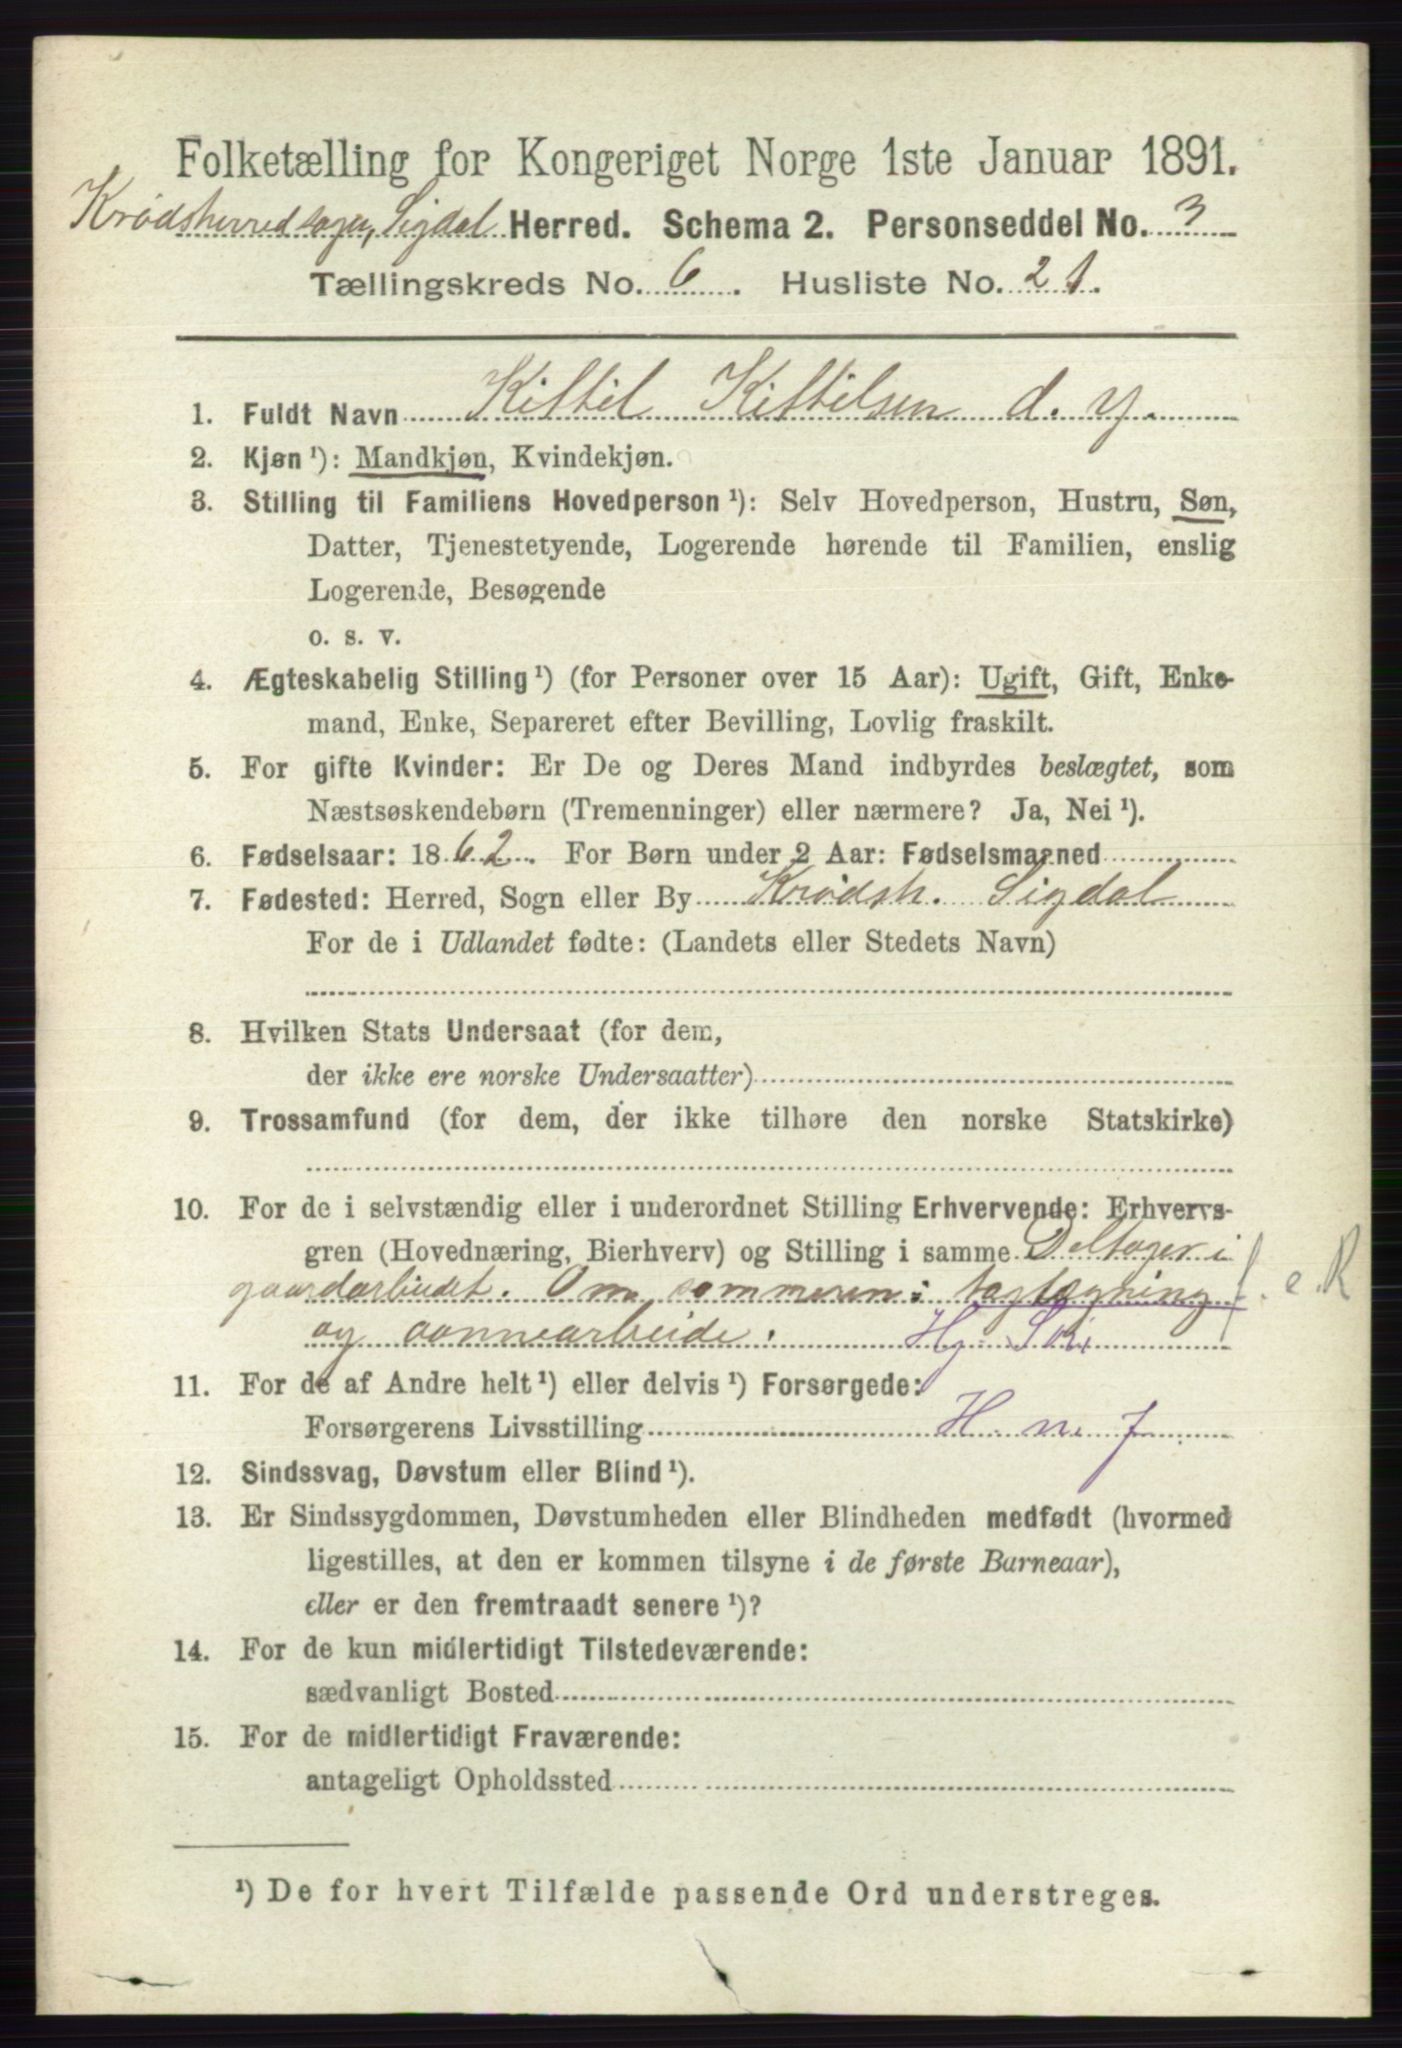 Folketælling for Kongeriget Norge 1ste Januar 1891.
Krødsherred sogn, Sigdal Herred. Schema 2. Personseddel No. 3
Tællingskreds No. 6. Husliste No. 21.
1. Fuldt Navn Kittil Kittilsen d. y.
2. Kjøn ¹): Mandkjøn, Kvindekjøn.
3. Stilling til Familiens Hovedperson ¹): Selv Hovedperson, Hustru, Søn,
Datter, Tjenestetyende, Logerende hørende til Familien, enslig
Logerende, Besøgende
o. s. v.
4. Ægteskabelig Stilling ¹) (for Personer over 15 Aar): Ugift, Gift, Enke-
mand, Enke, Separeret efter Bevilling, Lovlig fraskilt.
5. For gifte Kvinder: Er De og Deres Mand indbyrdes beslægtet, som
Næstsøskendebørn (Tremenninger) eller nærmere? Ja, Nei ¹).
6. Fødselsaar: 1862. For Børn under 2 Aar: Fødselsmaaned
7. Fødested: Herred, Sogn eller By Krødsh. Sigdal
For de i Udlandet fødte: (Landets eller Stedets Navn)
8. Hvilken Stats Undersaat (for dem,
der ikke ere norske Undersaatter)
9. Trossamfund (for dem, der ikke tilhøre den norske Statskirke)
10. For de i selvstændig eller i underordnet Stilling Erhvervende: Erhvervs-
gren (Hovednæring, Bierhverv) og Stilling i samme Deltager i
gaardarbeidet. Om sommeren i tagtægning f. e. R
og aannearbeide.
11. For de af Andre helt ¹) eller delvis ¹) Forsørgede:
Forsørgerens Livsstilling
12. Sindssvag, Døvstum eller Blind ¹).
13. Er Sindssygdommen, Døvstumheden eller Blindheden medfødt (hvormed
ligestilles, at den er kommen tilsyne i de første Barneaar),
eller er den fremtraadt senere ¹)?
14. For de kun midlertidigt Tilstedeværende:
sædvanligt Bosted
15. For de midlertidigt Fraværende:
antageligt Opholdssted
¹) De for hvert Tilfælde passende Ord understreges.